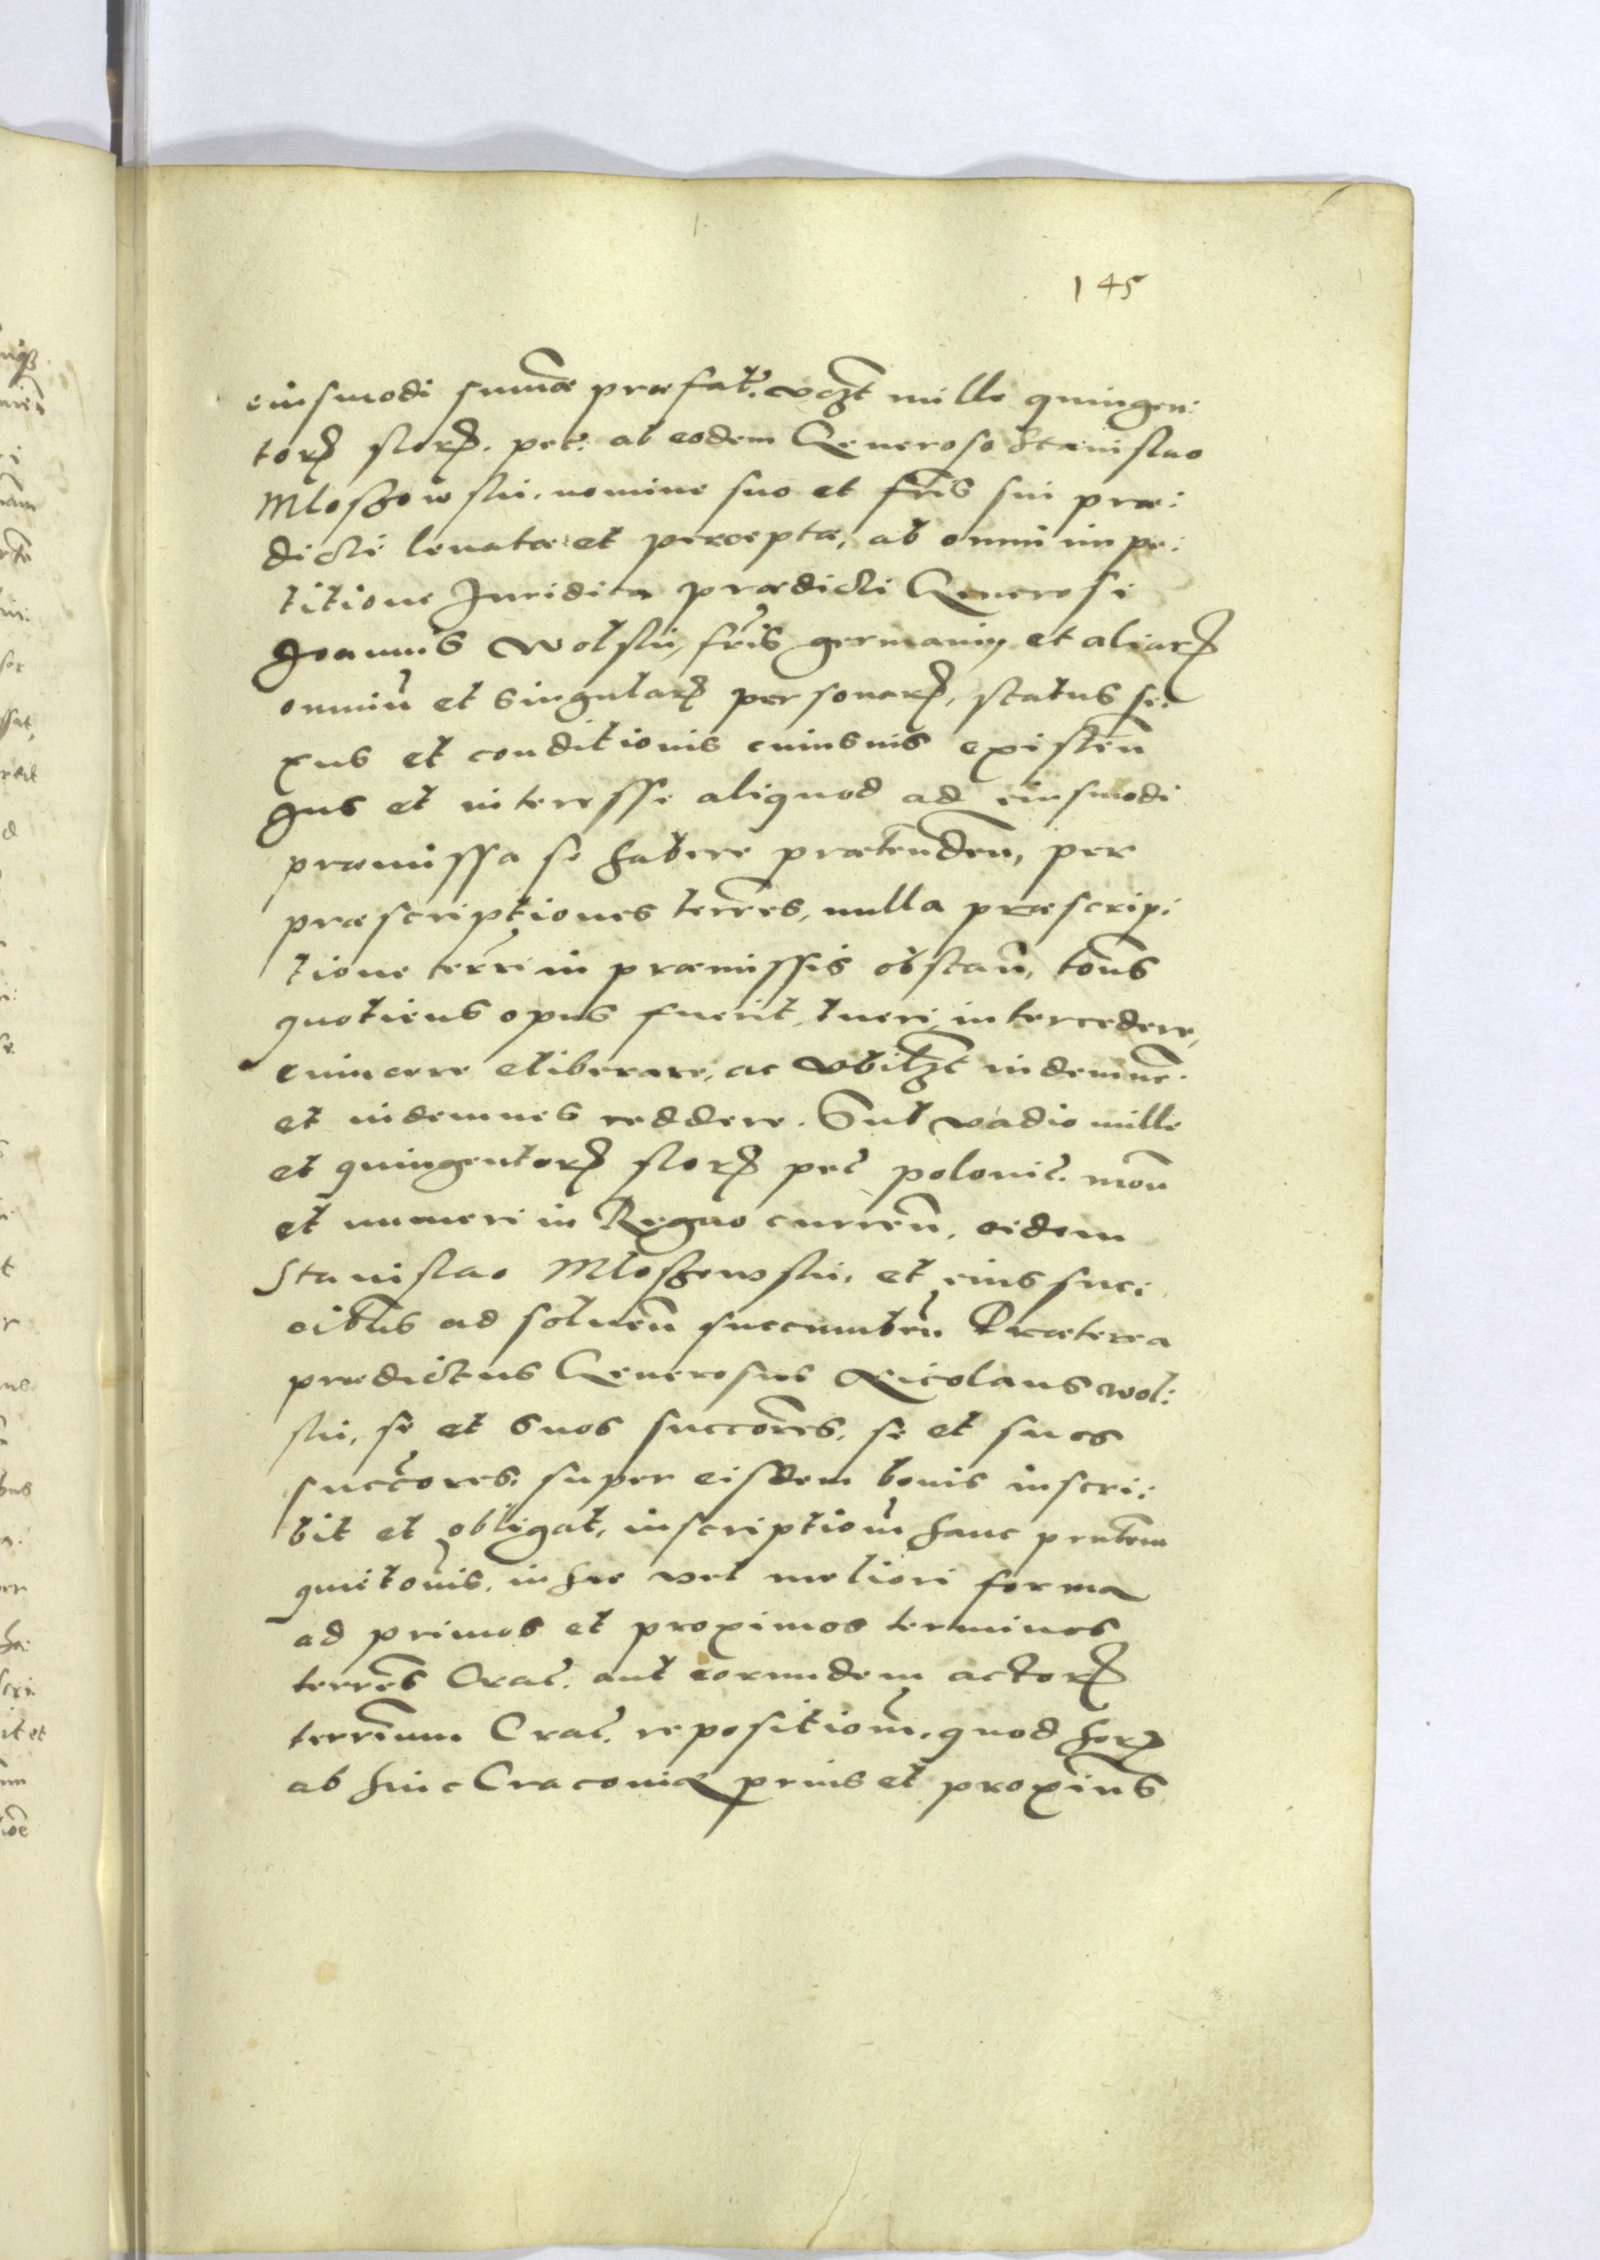 145
eiusmodi summae praefat. vdzt mille quingen:
torz florz. pec: ab eodem Generoso Stanislao
Mloszowski, nomine suo et fris sui prae:
dicti levatae et perceptae, ab omni impe:
titione Juridica praedicti Generosi
Joannis Wolski, fris germani, et aliarz
omniu et singularz personarz, status se:
xus et conditionis cuiusvis existen
Jus et interesse aliquod ad eiusmodi
praemissa se habere praetenden, per
praescriptiones terres, nulla praescrip:
tione terri in praemissis obstan, tons
quotiens opus fuerit, tueri, intercedere,
evincere eliberare, ac vbilzt indemnē.
et indemnes reddere. Sub vadio mille
et quingentorz florz pec polonic. mon
et numeri in Regno curren, eidem
Stanislao Mloszowski, et eius suc:
oibus ad solven succumben Praeterea
praedictus Generosus Nicolaus Wol:
ski, se et suos succores, se et suos
succores, super eisdem bonis inscri:
bit et obligat, inscriptiom hanc pntem
quietonis, in hac vel meliori forma
ad primos et proximos terminos
terres Crac. aut eorundem actorz
terrium Crac. repositiom, quod horz
ab hinc Cracoviae prius et proxius